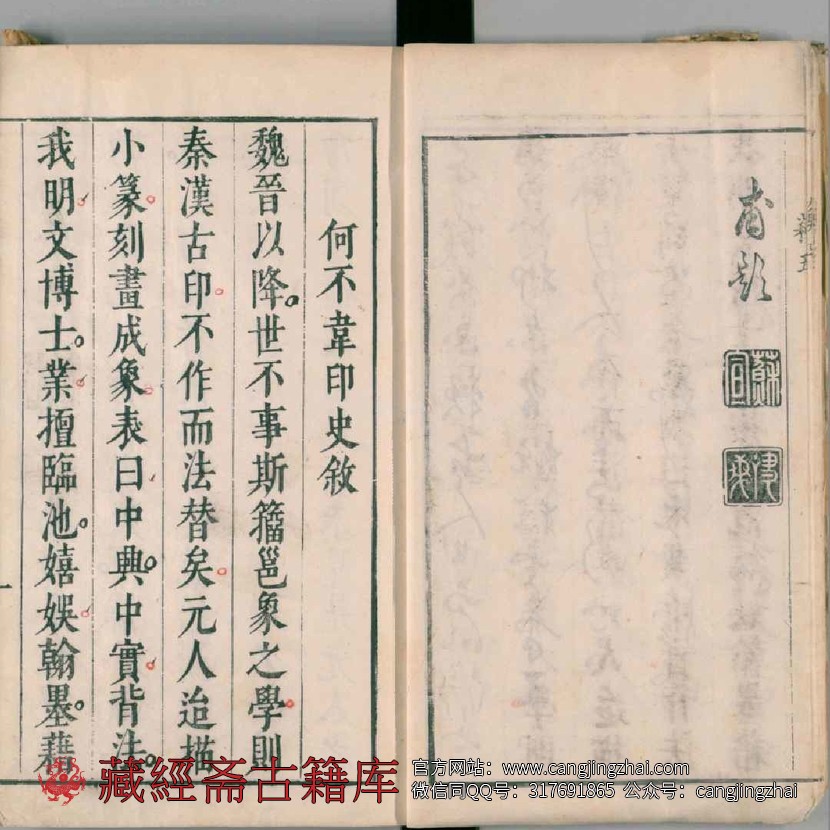 甫題
蘇宣
何不韋印史敘
魏晉以降世不事斯籒邕象之學則
秦漢古印不作而法替矣元人迨描
小篆刻畫成象表曰中興中實背法
我明文博士業擅臨池嬉娛翰墨藉
藏經斋古籍库
官方网站：www.cangjingzhai.com
微信同QQ号：317691865 公众号：cangjingzhai